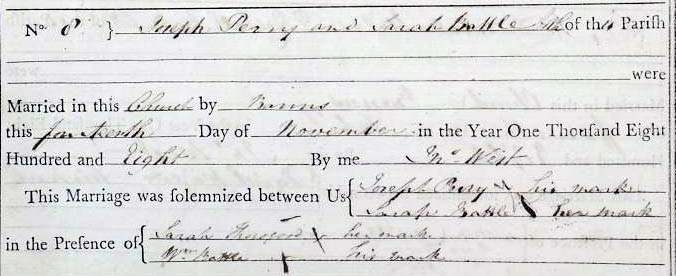 No. 8 } Joseph Perry and Sarah Battle of this Pariſh
were
Married in this Church by Banns
this fourteenth Day of November in the Year One Thouſand Eight
Hundred and Eight By me Jno West
This Marriage was ſolemnized between Us { Joseph Perry x his mark
Sarah Battle x her mark
in the Preſence of { Sarah x her mark
Wm Battle x his mark